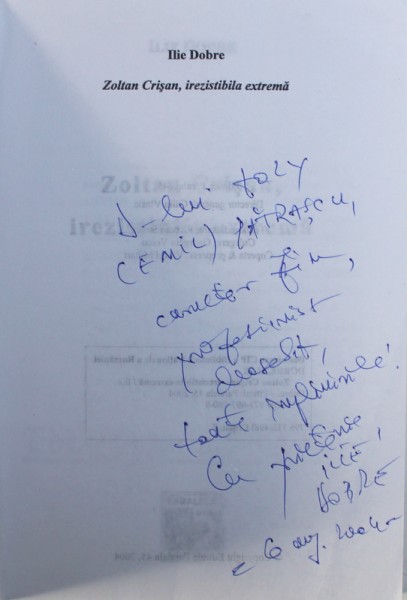 Ilie Dobre
Zoltan Crişan, irezistibila extremă
D-lui Foly
(EMIL) PĂTRAŞCU,
caracter fin,
profesionist
deosebit,
toate împlinirile!
Cu prietenie
ILIE
DOBRE
6 aug. 2004